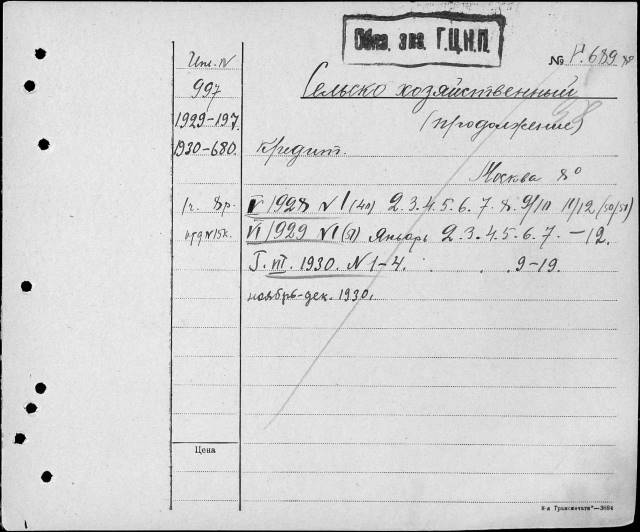 Обяз. экз. Г.Ц.К.П.
№ Г.689 8°
Инв. N
997
Сельско хозяйственный
1929-197
(продолжение)
1930-680.
Кредит.
Москва 8°
1г. 8р.
V 1928 N 1 (40) 2. 3. 4. 5. 6. 7. 8. 9/10 11/12 (50/51)
VI 1929 N 1 (51) Январь 2. 3. 4. 5. 6. 7. -12.
N 15к.
Г. VII. 1930. N 1-4. 9-19.
ноябрь-дек. 1930.
Цена
8-я „Транспечати“—3684
1